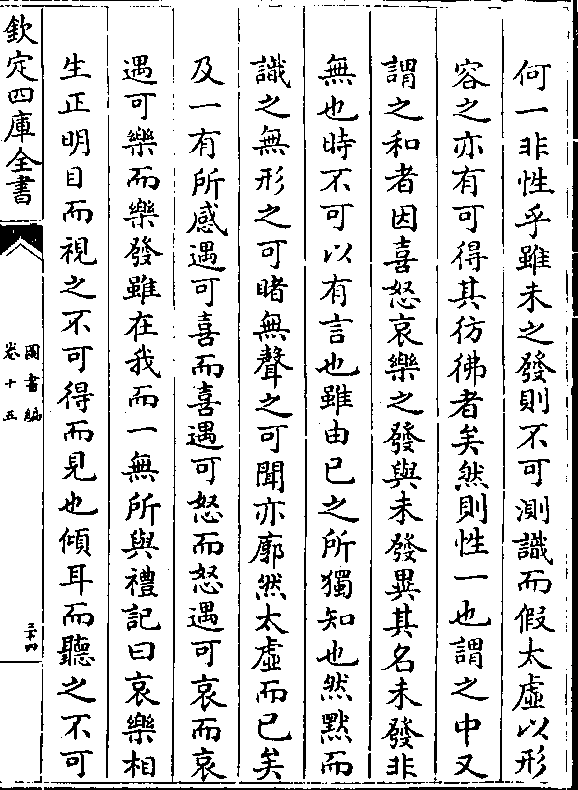 何一非性乎雖未之發則不可測識而假太虛以形
容之亦有可得其彷彿者矣然則性一也謂之中又
謂之和者因喜怒哀樂之發與未發異其名未發非
無也時不可以有言也雖由已之所獨知也然黙而
識之無形之可睹無聲之可聞亦廓然太虛而已矣
及一有所感遇可喜而喜遇可怒而怒遇可哀而哀
遇可樂而樂發雖在我而一無所與禮記曰哀樂相
生正明目而視之不可得而見也傾耳而聽之不可
欽定四庫全書
圖書編
卷十五
三十四